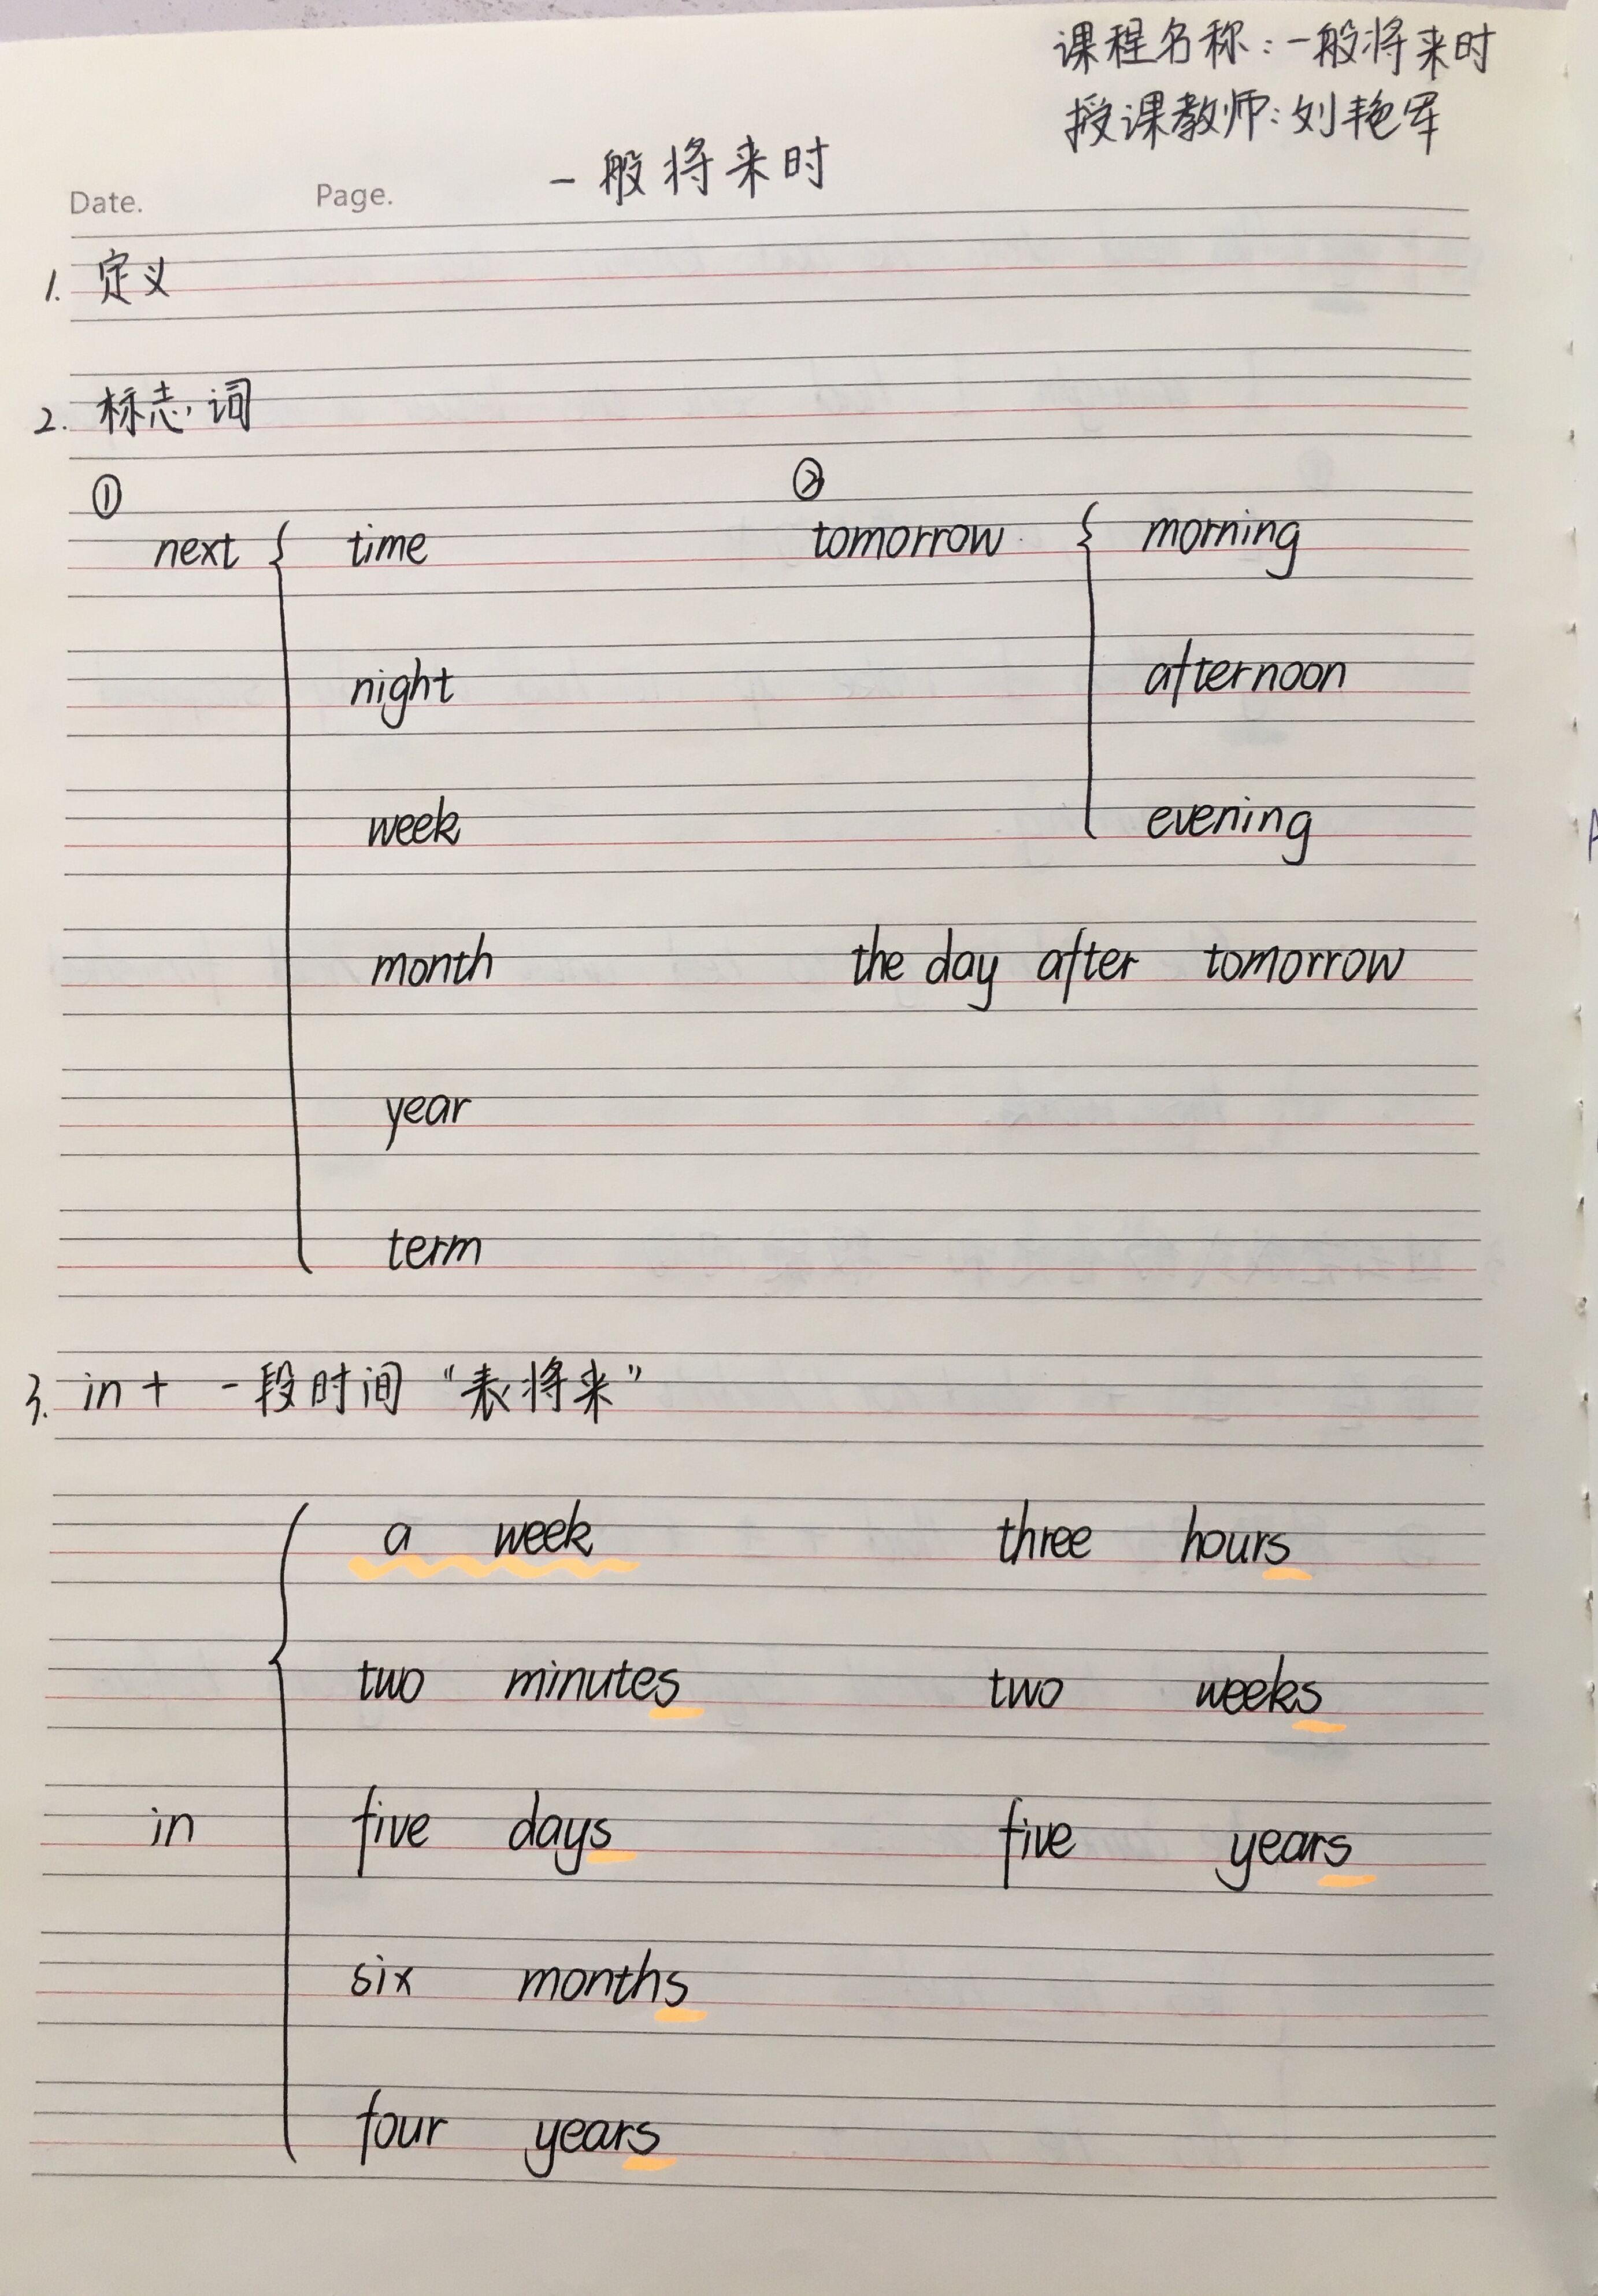 课程名称:一般将来时
授课教师:刘艳军
一般将来时
Date. Page.
1. 定义
2. 标志词
① ②
next { time tomorrow { morning
night afternoon
week evening
month the day after tomorrow
year
term
3. in + 一段时间 “表将来”
a week three hours
two minutes two weeks
in { five days five years
six months
four years